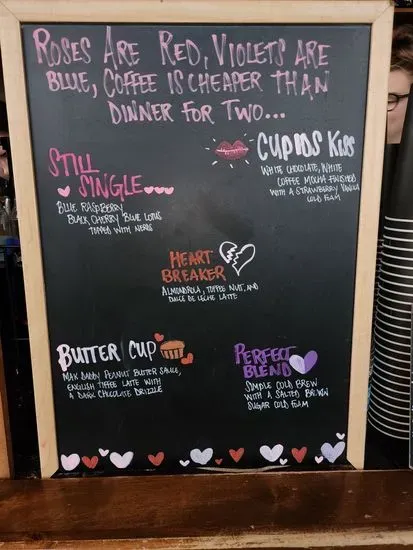 ROSES ARE RED, VIOLETS ARE
BLUE, COFFEE IS CHEAPER THAN
DINNER FOR TWO...
STILL
SINGLE
BLUE RASPBERRY
BLACK CHERRY BLUE LOTUS
TOPPED WITH NERDS
CUPIDS KISS
WHITE CHOCOLATE, WHITE
COFFEE MOCHA FINISHED
WITH A STRAWBERRY VANILLA
COLD FOAM
HEART
BREAKER
ALMONDROLA, TOFFEE NUT, AND
DULCE DE LECHE LATTE
BUTTER CUP
MAK DADDY PEANUT BUTTER SAUCE,
ENGLISH TOFFEE LATTE WITH
A DARK CHOCOLATE DRIZZLE
PERFECT
BLEND
SIMPLE COLD BREW
WITH A SALTED BROWN
SUGAR COLD FOAM